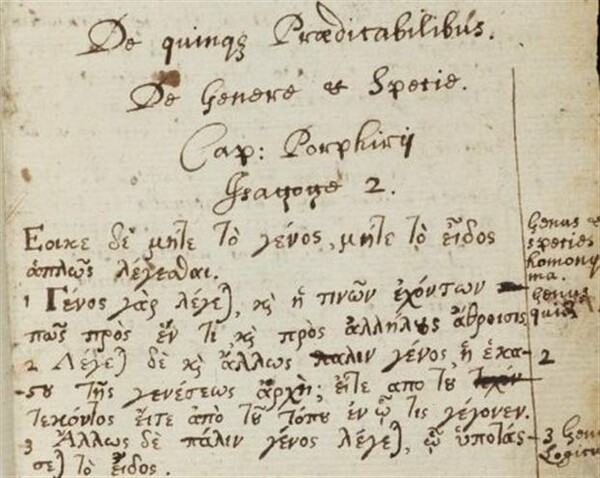 De quinqꝫ Prædicabilibus.
De Genere et Specie.
Cap: Porphirij
Isagoge 2.
Εοικε δὲ μήτε τὸ γένος, μήτε τὸ εἶδος
ἁπλῶς λέγεσθαι.
1 Γένος γὰρ λέγε), κὶ ἡ τινῶν ἐχόντων
πῶς πρὸς ἕν τι, κὶ πρὸς ἀλλήλȣς ἄθροισις
2 Λέγε) δὲ κὶ ἄλλως παλιν γένος, ἡ ἑκα-
ϛȣ τῆς γενέσεως ἀρχὴ; εἴτε απο τȣ
τεκόντος εἴτε ἀπὸ τȣ͂ τόπȣ ἐν ᾧ τις γέγονεν.
3 Ἄλλως δὲ πάλιν γένος λέγε), ᾧ ὑποτάσ-
σε) τὸ εἶδος.
Genus et
species
homony
ma.
Genus
quid
2
3 Genu
Logicu